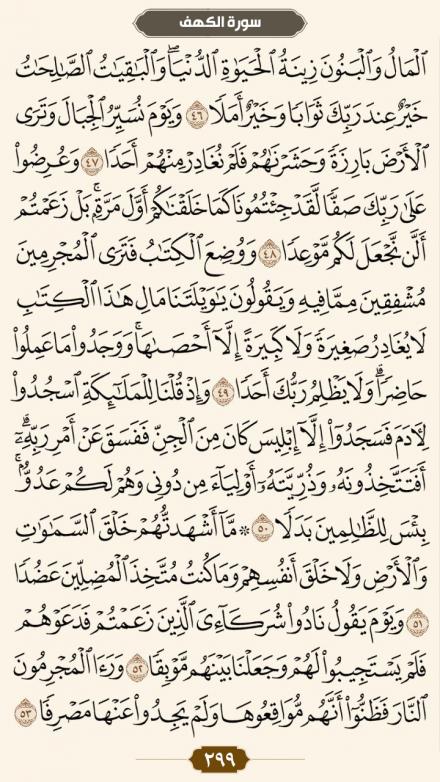 سورة الكهف
ٱلْمَالُ وَٱلْبَنُونَ زِينَةُ ٱلْحَيَوٰةِ ٱلدُّنْيَاۖ وَٱلْبَٰقِيَٰتُ ٱلصَّٰلِحَٰتُ
خَيْرٌ عِندَ رَبِّكَ ثَوَابًا وَخَيْرٌ أَمَلًا ٤٦ وَيَوْمَ نُسَيِّرُ ٱلْجِبَالَ وَتَرَى
ٱلْأَرْضَ بَارِزَةً وَحَشَرْنَٰهُمْ فَلَمْ نُغَادِرْ مِنْهُمْ أَحَدًا ٤٧ وَعُرِضُوا۟
عَلَىٰ رَبِّكَ صَفًّا لَّقَدْ جِئْتُمُونَا كَمَا خَلَقْنَٰكُمْ أَوَّلَ مَرَّةٍۭۚ بَلْ زَعَمْتُمْ
أَلَّن نَّجْعَلَ لَكُم مَّوْعِدًا ٤٨ وَوُضِعَ ٱلْكِتَٰبُ فَتَرَى ٱلْمُجْرِمِينَ
مُشْفِقِينَ مِمَّا فِيهِ وَيَقُولُونَ يَٰوَيْلَتَنَا مَالِ هَٰذَا ٱلْكِتَٰبِ
لَا يُغَادِرُ صَغِيرَةً وَلَا كَبِيرَةً إِلَّآ أَحْصَىٰهَاۚ وَوَجَدُوا۟ مَا عَمِلُوا۟
حَاضِرًاۗ وَلَا يَظْلِمُ رَبُّكَ أَحَدًا ٤٩ وَإِذْ قُلْنَا لِلْمَلَٰٓئِكَةِ ٱسْجُدُوا۟
لِـَٔادَمَ فَسَجَدُوٓا۟ إِلَّآ إِبْلِيسَ كَانَ مِنَ ٱلْجِنِّ فَفَسَقَ عَنْ أَمْرِ رَبِّهِۦٓۗ
أَفَتَتَّخِذُونَهُۥ وَذُرِّيَّتَهُۥٓ أَوْلِيَآءَ مِن دُونِى وَهُمْ لَكُمْ عَدُوٌّۢۚ
بِئْسَ لِلظَّٰلِمِينَ بَدَلًا ٥٠ ۞ مَّآ أَشْهَدتُّهُمْ خَلْقَ ٱلسَّمَٰوَٰتِ
وَٱلْأَرْضِ وَلَا خَلْقَ أَنفُسِهِمْ وَمَا كُنتُ مُتَّخِذَ ٱلْمُضِلِّينَ عَضُدًا
٥١ وَيَوْمَ يَقُولُ نَادُوا۟ شُرَكَآءِىَ ٱلَّذِينَ زَعَمْتُمْ فَدَعَوْهُمْ
فَلَمْ يَسْتَجِيبُوا۟ لَهُمْ وَجَعَلْنَا بَيْنَهُم مَّوْبِقًا ٥٢ وَرَءَا ٱلْمُجْرِمُونَ
ٱلنَّارَ فَظَنُّوٓا۟ أَنَّهُم مُّوَاقِعُوهَا وَلَمْ يَجِدُوا۟ عَنْهَا مَصْرِفًا ٥٣
٢٩٩